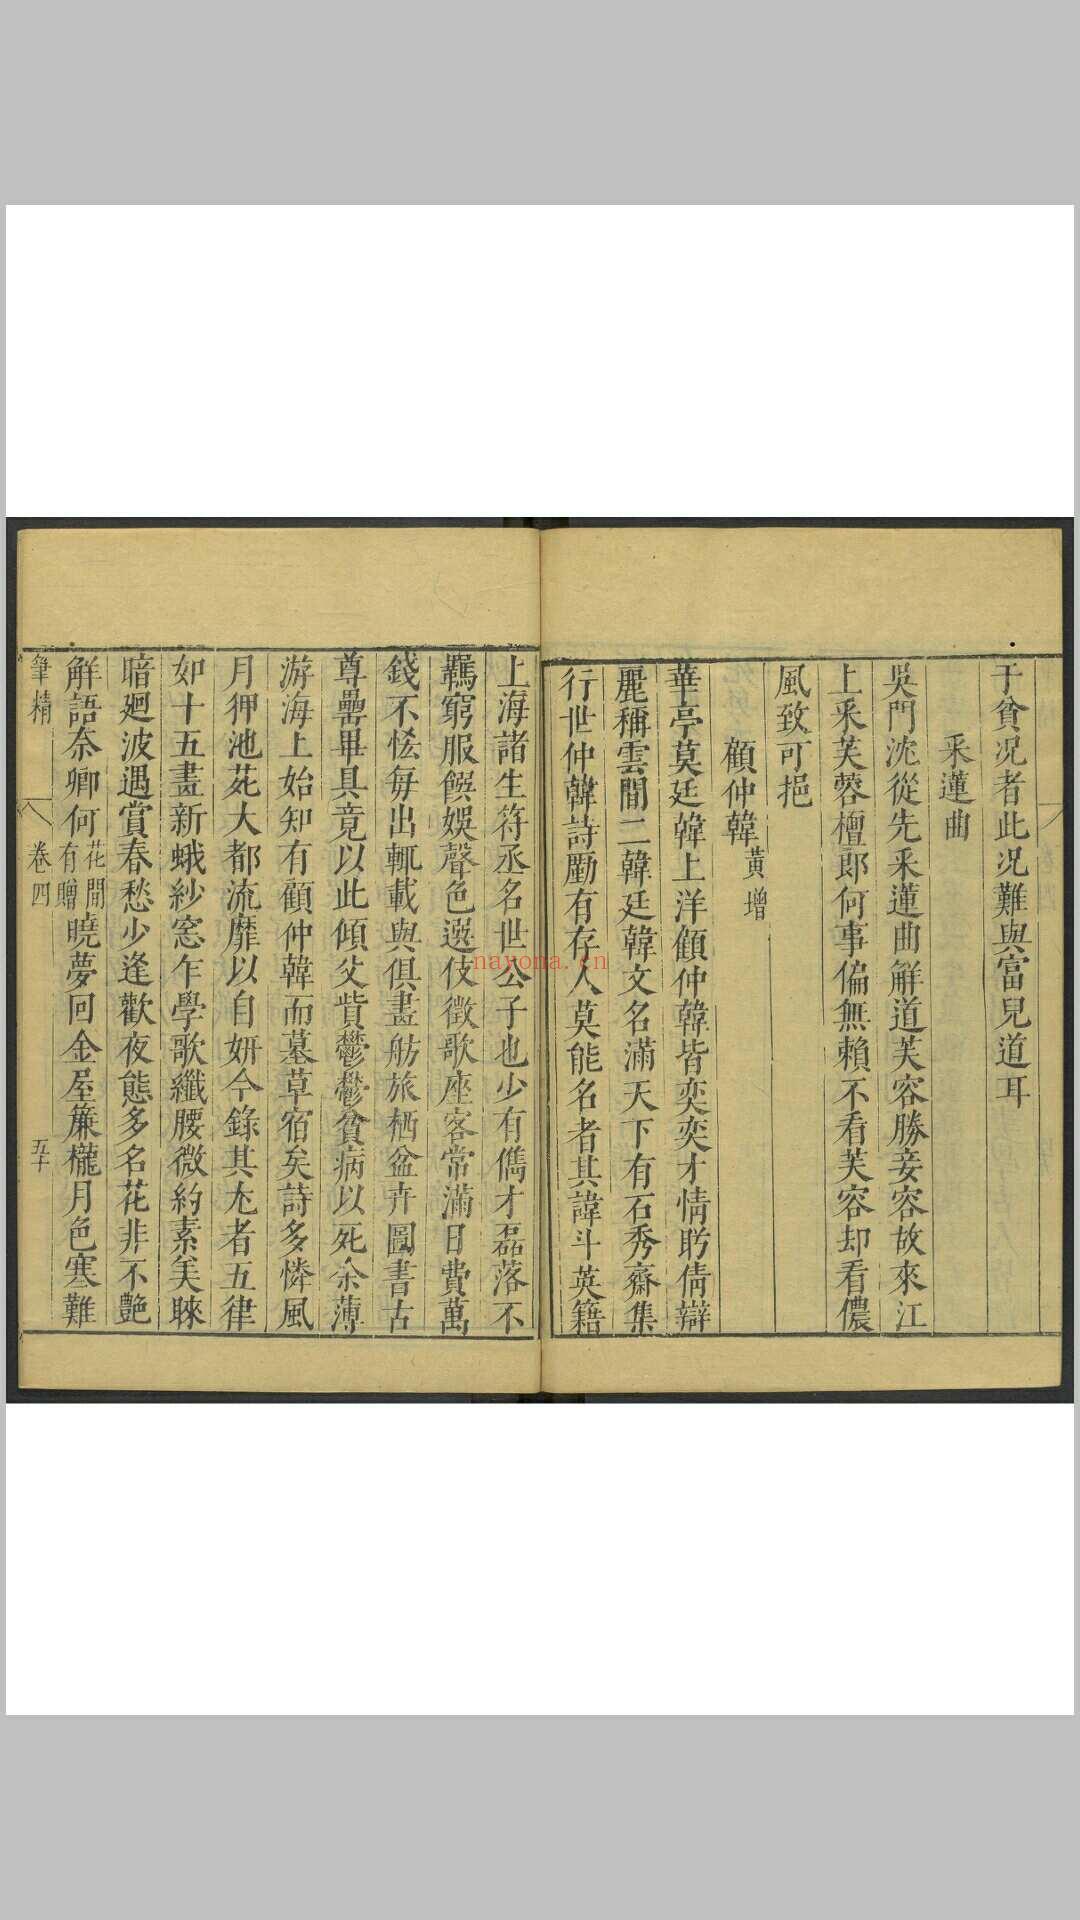 于貧况者此况難與富兒道耳
采蓮曲
吳門沈從先采蓮曲解道芙容勝妾容故來江
上采芙蓉檀郎何事偏無賴不看芙容却看儂
風致可挹
顧仲韓黃增
華亭莫廷韓上洋顧仲韓皆奕奕才情盻倩辯
麗稱雲間二韓廷韓文名滿天下有石秀齋集
行世仲韓詩勵有存人莫能名者其諱斗英籍
上海諸生符丞名世公子也少有儁才磊落不
羈窮服饌娛聲色選伎徵歌座客常滿日費萬
錢不恡每出輒載與俱畫舫旅栖盆卉圖書古
尊罍畢具竟以此傾父貲鬱鬱貧病以死余薄
游海上始知有顧仲韓而墓草宿矣詩多憐風
月狎池苑大都流靡以自妍今錄其尤者五律
如十五畫新蛾紗窓乍學歌纖腰微約素矣睞
暗廻波遇賞春愁少逢歡夜態多名花非不艶
解語奈卿何花間有贈曉夢回金屋簾櫳月色寒難
筆精
卷四
五十
nayona.cn